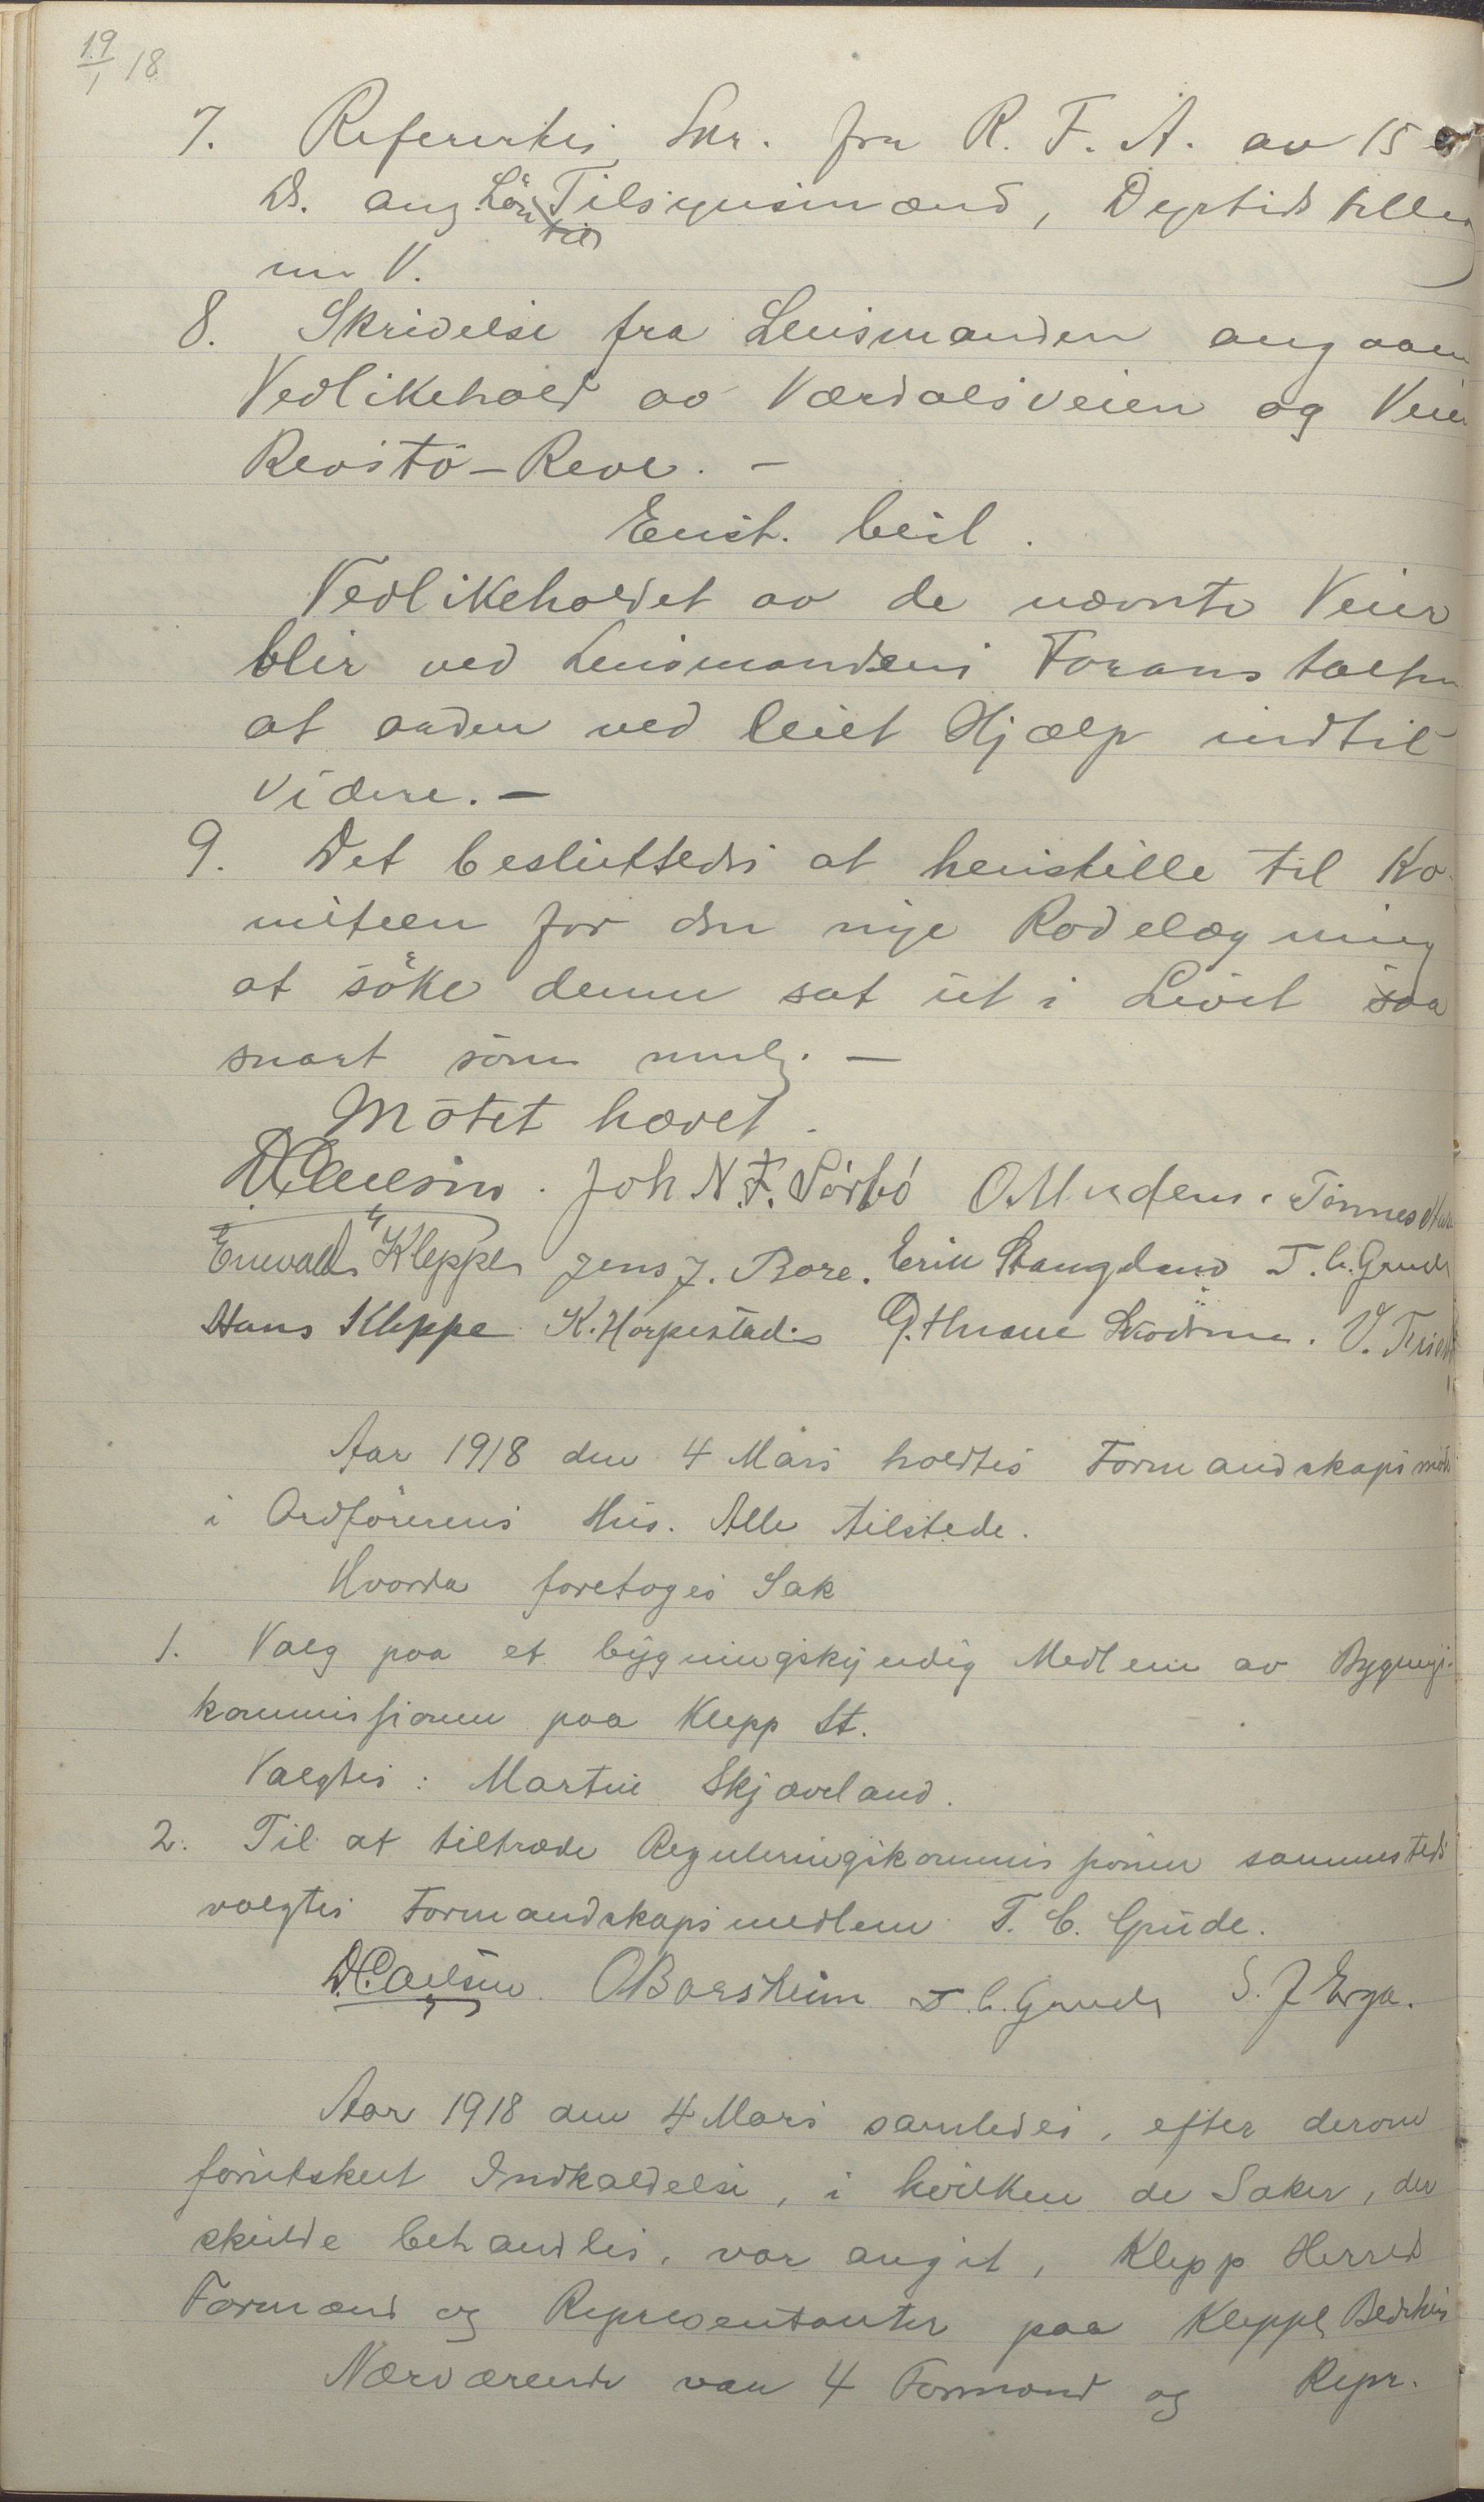 19/1 18
7. Refertes Skr. fra R. F. A. av 15 
ds. ang Løn til Tilsynsmænd, Dyrtidstillæg
m. V.
8. Skrivelse fra Lensmanden angaaen
Vedlikehold av Værdalsveien og Veien
Revstö-Reve. —
Enst. besl.
Vedlikeholdet av de nævnte Veier
blir ved Lensmandens Foranstaltn
at ordne ved leiet Hjælp indtil
videre. —
9. Det besluttedes at henstille til Ko-
miteen for den nye Rodelægning
at söke denne sat ut i Livet saa
snart som mulg. —
Mötet hævet.
Joh N. F. Sörbö Tönnes
Enevald Kleppe Jens J. Bore. Erik Stangeland T. C. Grude
Hans Kleppe K. Horpestad V. Friestad
Aar 1918 den 4 Mars holdtes Formandskapsmöte
i Ordförerens Hus. Alle tilstede.
Hvorda foretoges Sak
1. Valg paa et bygningskyndig Medlem av Bygnings-
kommissionen paa Klepp St.
Valgtes: Martin Skjæveland.
2. Til at tiltræde Reguleringskommissionen sammesteds
valgtes Formandskapsmedlem T. C. Grude.
O Borsheim T. C. Grude S. J Erga.
Aar 1918 den 4 Mars samledes, efter derom
forutskeet Indkaldelse, i hvilken de Saker, der
skulde behandles, var angit, Klepp Herred
Formænd og Representanter paa Kleppe Bedehus
Nærværende var 4 Formænd og Repr.